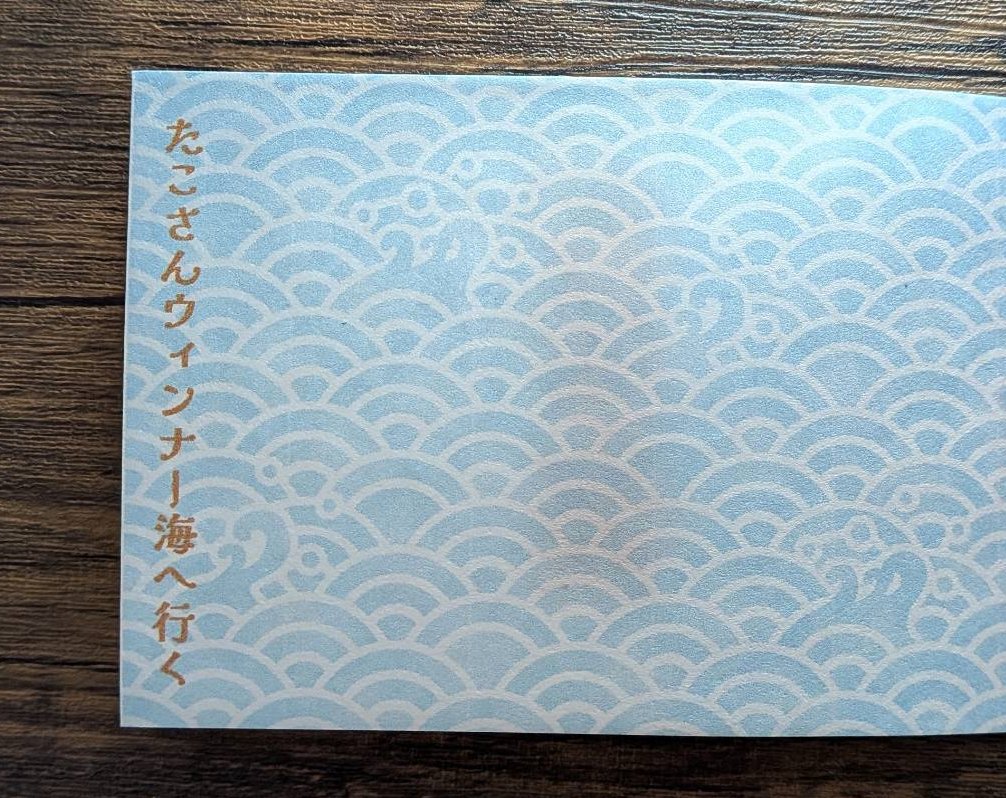 たこさんウィンナー海へ行く